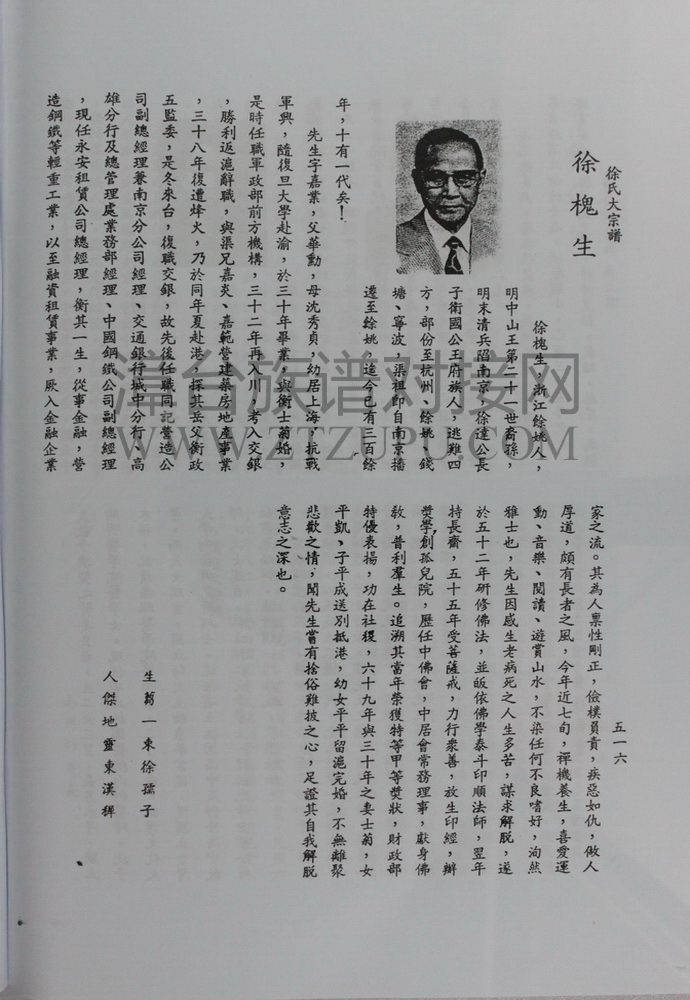 徐氏大宗譜
徐槐生
徐槐生，浙江餘姚人，
明中山王第二十一世裔孫，
明末清兵陷南京，徐達公長
子衛國公王府族人，逃難四
方，部份至杭州、餘姚、錢
塘、寧波，渠祖即自南京播
遷至餘姚，迄今已有三百餘
年，十有一代矣！
先生字嘉業，父華勳，母沈秀貞，幼居上海，抗戰
軍興，隨復旦大學赴渝，於三十年畢業，與衡士蒟婚，
是時任職軍政部前方機構，三十二年再入川，考入交銀
，勝利返滬辭職，與渠兄嘉炎、嘉範營建築房地產事業
，三十八年復遭烽火，乃於同年夏赴港，探其岳父衡政
五監委，是冬來台，復職交銀，故先後任職同記營造公
司副總經理兼南京分公司經理、交通銀行城中分行、高
雄分行及總管理處業務部經理、中國鋼鐵公司副總經理
，現任永安租賃公司總經理，衡其一生，從事金融，營
造鋼鐵等輕重工業，以至融資租賃事業，厥入金融企業
家之流。其為人稟性剛正，儉樸負責，疾惡如仇，做人
厚道，頗有長者之風，今年近七旬，禪機養生，喜愛運
動、音樂、閱讀、遊賞山水，不染任何不良嗜好，洵然
雅士也，先生因感生老病死之人生多苦，謀求解脫，遂
於五十二年研修佛法，並皈依佛學泰斗印順法師，翌年
持長齋，五十五年受菩薩戒，力行衆善，放生印經，辦
獎學創孤兒院，歷任中佛會，中居會常務理事，獻身佛
教，普利羣生。追溯其當年榮獲特等甲等獎狀，財政部
特優表揚，功在社稷，六十九年與三十年之妻士蒟，女
平凱、子平成送別抵港，幼女平平留滬完婚，不無離聚
悲歡之情，聞先生嘗有捨俗難披之心，足證其自我解脫
意志之深也。
生蒭一束徐孺子
人傑地靈東漢稱
五一六
WWW.ZTZUPU.COM